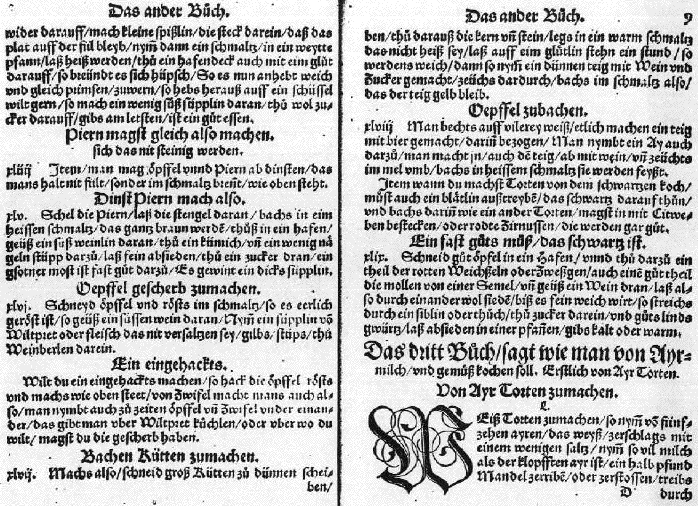 Das ander Buͦch.
wider darauff/mach kleine spißlin/die steck darein/daß das
plat auff der fül bleyb/nym̃ dann ein schmaltz/in ein weytte
pfann/laß heiß werden/thuͦ ein hafendeck auch mit ein gluͤt
darauff/so breündt es sich hüpsch/So es nun anhebt weich
vnd gleich pfinsen/zuwern/so hebs herauß auff ein schüssel
wilt gern/so mach ein wenig süß süpplin daran/thuͦ wol zu-
cker darauff/gibs am letsten/ist ein guͦt essen.
Piern magst gleich also machen.
sich das nit steinig werden.
xliiij Item/man mag oͤpffel vnnd Piern ab dinsten/das
mans halt nit stilt/sonder im schmaltz breñt/wie oben steht.
Dinst Piern mach also.
xlv. Schel die Piern/laß die stengel daran/bachs in eim
heissen schmaltz/das gantz braun werdẽ/thuͦß in ein hafen/
geüß ein süß weinlin daran/thuͦ ein kümich/vñ ein wenig nä
gelin stüpp darzuͦ/laß fein absieden/thuͦ ein zucker dran/ein
gsotner most ist fast guͦt darzuͦ/Es gewint ein dicks süpplin.
Oepffel gescherb zumachen.
xlvj. Schneyd oͤpffel vnd roͤsts im schmaltz/so es eerlich
geroͤst ist/so geüß ein süssen wein daran/Nym̃ ein süpplin võ
Wiltpret oder fleisch das nit versaltzen sey/gilbs/stüps/thuͦ
Weinberlen darein.
Ein eingehackts.
Wilt du ein eingehackts machen/so hack die oͤpffel roͤsts
vnd machs wie oben steet/von Zwifel macht mans auch al-
so/man nymbt auch zuͦ zeiten oͤpffel vñ Zwifel vnder einan-
der/das gibt man vber Wiltpret kuͤchlen/oder vber wo du
wilt/magst du die gescherb haben.
Bachen Kütten zumachen.
xlvij. Machs also/schneid groß Kütten zuͦ dünnen schei-
ben/
Das ander Buͦch. 9
ben/thuͦ darauß die kern vñ stein/legs in ein warm schmaltz
das nicht heiß sey/laß auff eim gluͤtlin stehn ein stund/so
werdens weich/dann so nym̃ ein dünnen teig mit Wein vnd
Zucker gemacht/zeüchs dardurch/bachs im schmaltz also/
das der teig gelb bleib.
Oepffel zubachen.
xlviij Man bechts auff vilerey weiß/etlich machen ein teig
mit bier gemacht/dariñ bezogen/Man nymbt ein Ay auch
darzuͦ/man macht jn/auch dẽ teig/ab mit wein/vñ zeüchts
im mel vmb/bachs in heissem schmaltz sie werden feyßt.
Item wann du machst Torten von dem schwartzen koch/
muͦst auch ein blaͤtlin außtreybẽ/das schwartz darauf thuͦn/
vnd bachs dariñ wie ein ander Torten/magst in mit Citwe-
ben bestecken/oder rodte Zirnussen/die werden gar guͦt.
Ein fast guͦts muͦß/das schwartz ist.
xlix. Schneid guͦt oͤpfel in ein Hafen/vnnd thuͦ darzuͦ ein
theil der rotten Weichseln oder Zweßgen/auch einẽ guͦt theil
die mollen von einer Semel/vñ geüß ein Wein dran/laß al-
so durch einander wol siedẽ/biß es fein weich wirt/so streichs
durch ein siblin oder thuͦch/thuͦ zucker darein/vnd guͦts linds
gwürtz/laß absieden in einer pfañen/gibs kalt oder warm.
Das dritt Buͦch/sagt wie man von Ayr-
milch/vnd gemuͤß kochen soll. Erstlich von Ayr Torten.
Von Ayr Torten zumachen.
L.
WEiß Torten zumachen/so nym̃ võ fünf-
zehen ayren/das weyß/zerschlags mit
einem wenigen saltz/nym̃ so vil milch
als der klopfften ayr ist/ein halb pfund
Mandel zerribẽ/oder zerstossen/treibs
D durch